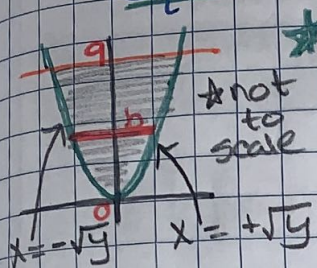 9
h
*not
to
scale
0
x=-√y
x=+√y